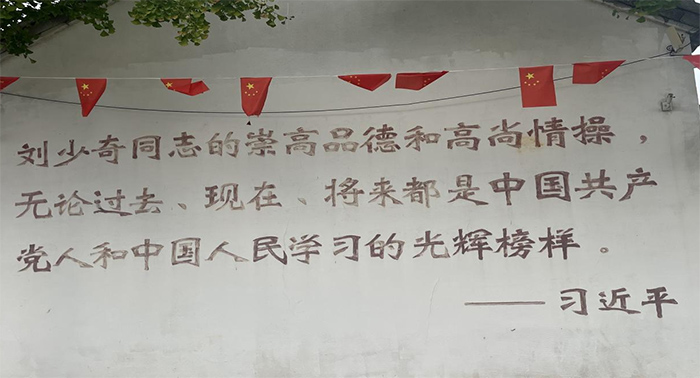 刘少奇同志的崇高品德和高尚情操，
无论过去、现在、将来都是中国共产
党人和中国人民学习的光辉榜样。
——习近平